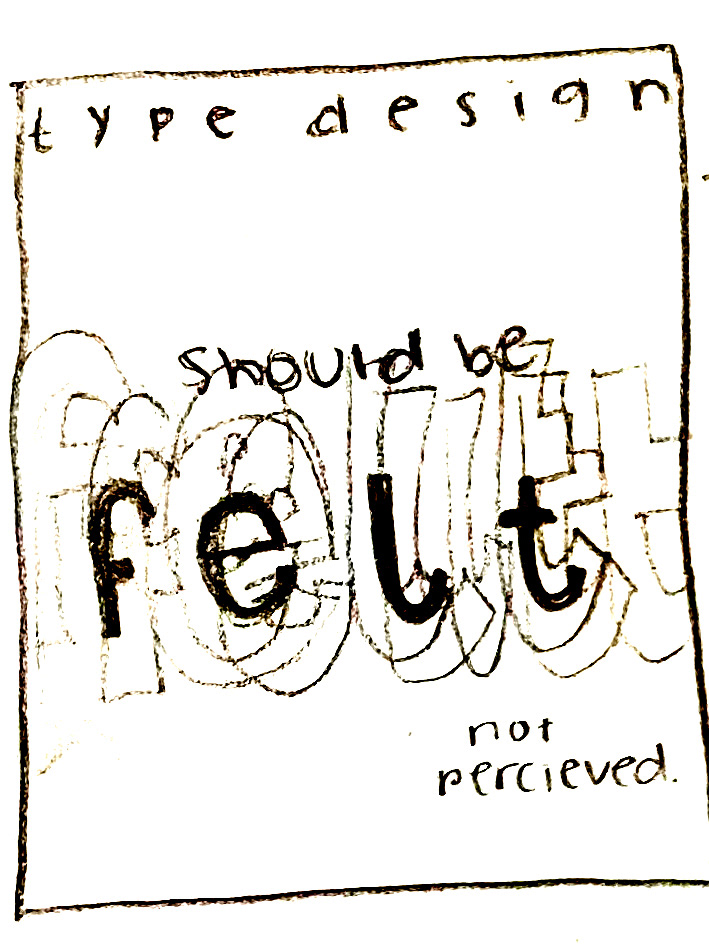 type design
should be
felt
not
percieved.